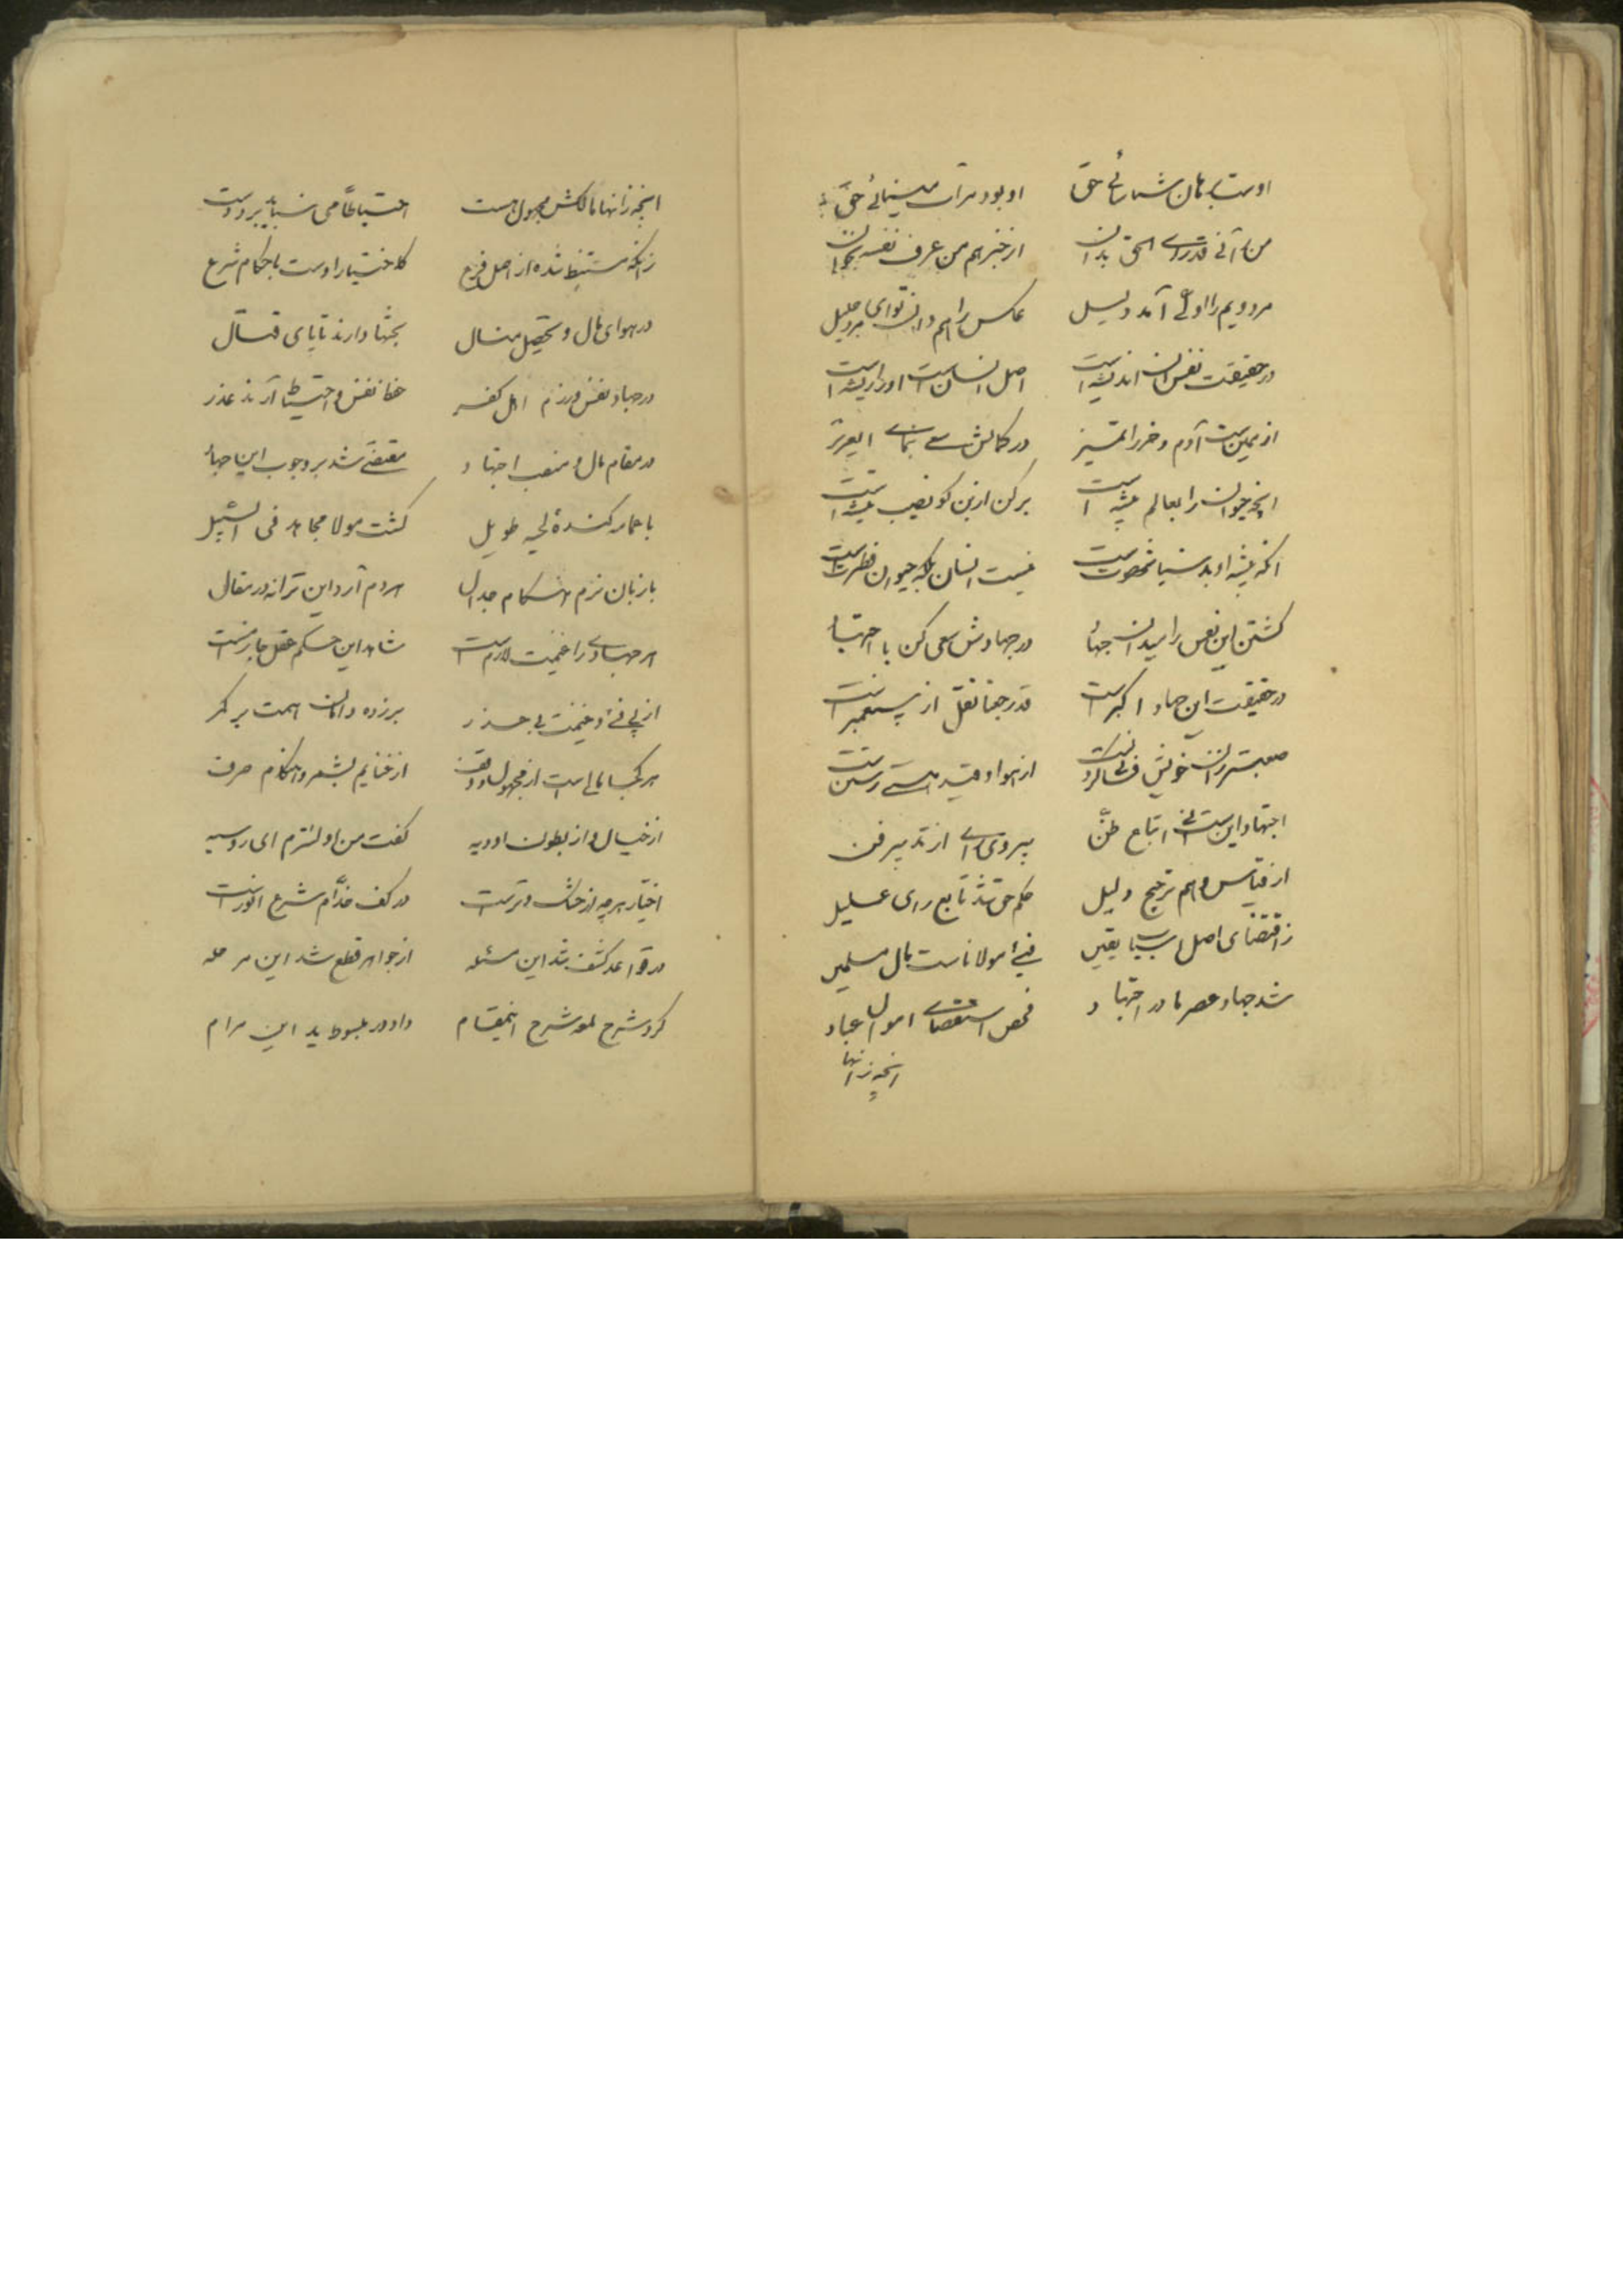 اوست برهان شناسائی حق او بود مرآت بینائی حق
من رآنی قد رای الحق بدان از خبر هم من عرف نفسه بخوان
مر دویم را اولی آمد دلیل عکس را هم دان تو ای مرد جلیل
در حقیقت نفس انسان اندیشه است اصل انسانست او را ریشه است
از یمین است آدم و خر را تمیز در کمالش سعی بنمای ای عزیز
آنچه حیوان را بعالم پیشه است بر کن از بن کو نصیب تیشه است
آنکه پیشه او بدنیا شهوتست نیست انسان بلکه حیوان فطرتست
کشتن این نفس را میدان جهاد در جهادش سعی کن با اجتهاد
در حقیقت این جهاد اکبر است قدر جعنا نقل از پیغمبر است
معتبر زان خویش فانی کردنست از هوا و قید هستی رستن است
اجتهاد اینست نی اتباع ظن پیروی از تدبیر فن
از قیاس و هم ترجیح دلیل حکم حق شد تابع رای علیل
ز اقتضای اصل اسباب یقین فیئ مولاناست مال مسلمین
شد جهاد عصر ما در اجتهاد فحص استقصای اموال عباد
آنچه ز انها
آنچه ز انها مالکش مجهول هست احتیاطا می نباید برد دست
ز آنکه مستنبط شده از اصل و فرع کاختیار اوست با حکام شرع
در هوای مال و تحصیل منال بحثها دارند تا پای قتال
در جهاد نفس و رزم اهل کفر خفا نفس و احتیاط آرند عذر
در مقام مال و منصب اجتهاد مقتضی شد بر وجوب این جهاد
با عمامه کنده لحیه طویل گشت مولا مجاهد فی السبیل
با زبان نرم هنگام جدال هردم آرد این ترانه در مقال
هر جهادی را غنیمت لازم است شاهد این حکم عقل جازم است
از پی فئ و غنیمت بی حذر برزده دامان همت بر کمر
هر کجا مالی است از مجهول و وقف از غنایم بشمرد هنگام صرف
از خیال و از بطون اودیه گفت من اولیترم ای روسیه
اختیار هرچه از خشک و ترست در کف خدام شرع انورست
در قواعد کشف شد این مسئله از جواهر قطع شد این مرحله
کرد شرح لمعه شرح اینمقام داد در مبسوط بد این مرام